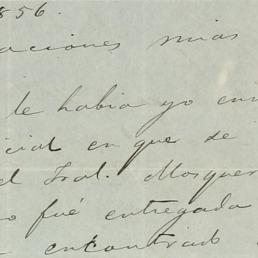 1856.
aciones mias
le habia yo en
cial en que se
el Gral. Mosquer
o fué entregada
encontrado